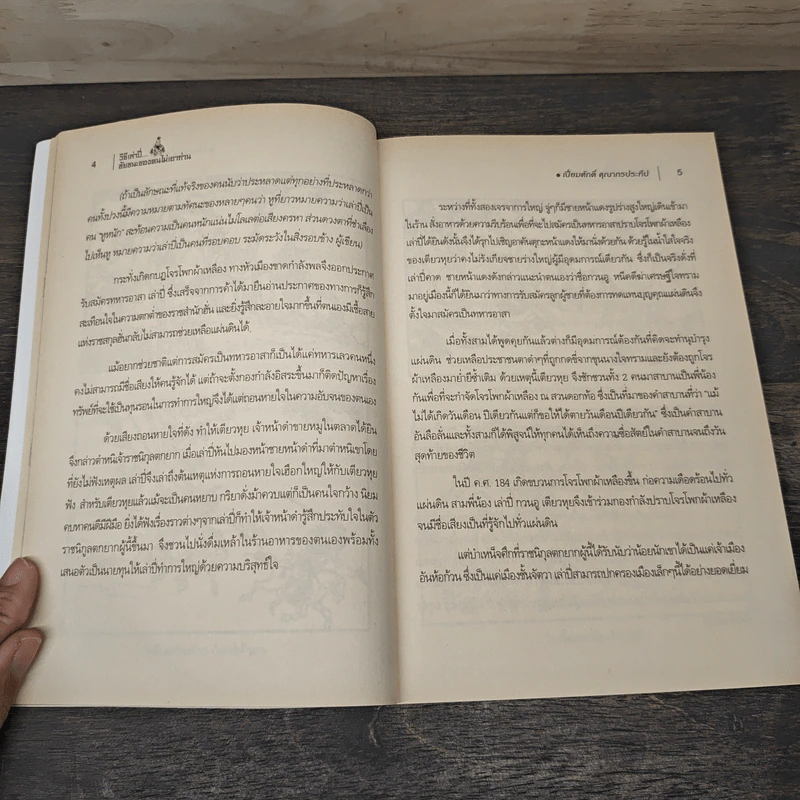 4
วิธีเล่าปี่...
(ถ้าเป็นลักษณะที่แท้จริงของคนนับว่าประหลาดแต่ทุกอย่างที่ประหลาดกว่า
คนทั้งปวงนี้มีความหมายตามทัศนะของหลายๆคนว่า หูที่ยาวหมายความว่าเล่าปี่เป็น
คน "หูหนัก" สะท้อนความเป็นคนหนักแน่นไม่โลเลต่อเสียงครหา ส่วนดวงตาที่ชำเลือง
ไปเห็นหู หมายความว่าเล่าปี่เป็นคนที่รอบคอบ ระมัดระวังในสิ่งรอบข้าง ผู้เขียน)
กระทั่งเกิดกบฏโจรโพกผ้าเหลือง ทางหัวเมืองขาดกำลังพลจึงออกประกาศ
รับสมัครทหารอาสา เล่าปี่ ซึ่งเสร็จจากการค้าได้มายืนอ่านประกาศของทางการก็รู้สึก
สะเทือนใจในความตกต่ำของราชสำนักฮั่น และยิ่งรู้สึกละอายใจมากขึ้นที่ตนเองมีเชื้อสาย
แห่งราชสกุลฮั่นกลับไม่สามารถช่วยเหลือแผ่นดินได้
แม้อยากช่วยชาติแต่การสมัครเป็นทหารอาสาก็เป็นได้แค่ทหารเลวคนหนึ่ง
คงไม่สามารถมีชื่อเสียงให้คนรู้จักได้ แต่ถ้าจะตั้งกองกำลังอิสระขึ้นมาก็ติดปัญหาเรื่อง
ทรัพย์ที่จะใช้เป็นทุนรอนในการทำการใหญ่จึงได้แต่ถอนหายใจในความอับจนของตนเอง
ด้วยเสียงถอนหายใจที่ดัง ทำให้เตียวหุย เจ้าหน้าดำขายหมูในตลาดได้ยิน
จึงกล่าวตำหนิเจ้าราชนิกุลตกยาก เมื่อเล่าปี่หันไปมองหน้าชายหน้าดำที่มาตำหนิเขาโดย
ที่ยังไม่ฟังเหตุผล เล่าปี่จึงเล่าถึงต้นเหตุแห่งการถอนหายใจเฮือกใหญ่ให้กับเตียวหุย
ฟัง สำหรับเตียวหุยแล้วแม้จะเป็นคนหยาบ กริยาดั่งม้าควบแต่ก็เป็นคนใจกว้าง นิยม
คบหาคนดีมีฝีมือ ยิ่งได้ฟังเรื่องราวต่างๆจากเล่าปี่ก็ทำให้เจ้าหน้าดำรู้สึกประทับใจในตัว
ราชนิกุลตกยากผู้นี้ขึ้นมา จึงชวนไปนั่งดื่มเหล้าในร้านอาหารของตนเองพร้อมทั้ง
เสนอตัวเป็นนายทุนให้เล่าปี่ทำการใหญ่ด้วยความบริสุทธิ์ใจ
• เปี่ยมศักดิ์ คุณากรประทีป 5
ระหว่างที่ทั้งสองเจรจาการใหญ่ จู่ๆก็มีชายหน้าแดงรูปร่างสูงใหญ่เดินเข้ามา
ในร้าน สั่งอาหารด้วยความรีบร้อนเพื่อที่จะไปสมัครเป็นทหารอาสาปราบโจรโพกผ้าเหลือง
เล่าปี่ได้ยินดังนั้นจึงได้รุกไปเชิญอาคันตุกะหน้าแดงให้มานั่งด้วยกัน ด้วยรู้ในน้ำใสใจจริง
ของเตียวหุยว่าคงไม่รังเกียจชายร่างใหญ่ผู้มีอุดมการณ์เดียวกัน ซึ่งก็เป็นจริงดั่งที่
เล่าปี่คาด ชายหน้าแดงดังกล่าวแนะนำตนเองว่าชื่อกวนอู หนีคดีฆ่าเศรษฐีใจทราม
มาอยู่เมืองนี้ก็ได้ยินมาว่าทางการรับสมัครลูกผู้ชายที่ต้องการทดแทนบุญคุณแผ่นดินจึง
ตั้งใจมาสมัครเป็นทหารอาสา
เมื่อทั้งสามได้พูดคุยกันแล้วต่างก็มีอุดมการณ์ต้องกันที่คิดจะทำนุบำรุง
แผ่นดิน ช่วยเหลือประชาชนตาดำๆที่ถูกกดขี่จากขุนนางใจทรามและยังต้องถูกโจร
ผ้าเหลืองมาย่ำยีซ้ำเติม ด้วยเหตุนี้เตียวหุย จึงชักชวนทั้ง 2 คนมาสาบานเป็นพี่น้อง
กันเพื่อที่จะกำจัดโจรโพกผ้าเหลือง ณ สวนดอกท้อ ซึ่งเป็นที่มาของคำสาบานที่ว่า "แม้
ไม่ได้เกิดวันเดือน ปีเดียวกันแต่ก็ขอให้ได้ตายวันเดือนปีเดียวกัน" ซึ่งเป็นคำสาบาน
อันลือลั่นและทั้งสามก็ได้พิสูจน์ให้ทุกคนได้เห็นถึงความซื่อสัตย์ในคำสาบานจนถึงวัน
สุดท้ายของชีวิต
ในปี ค.ศ. 184 เกิดขบวนการโจรโพกผ้าเหลืองขึ้น ก่อความเดือดร้อนไปทั่ว
แผ่นดิน สามพี่น้อง เล่าปี่ กวนอู เตียวหุยจึงเข้าร่วมกองกำลังปราบโจรโพกผ้าเหลือง
จนมีชื่อเสียงเป็นที่รู้จักไปทั่วแผ่นดิน
แต่บำเหน็จศึกที่ราชนิกุลตกยากผู้นี้ได้รับนับว่าน้อยนักเขาได้เป็นแค่เจ้าเมือง
อันห้อก้วน ซึ่งเป็นแค่เมืองชั้นจัตวา เล่าปี่สามารถปกครองเมืองเล็กๆนี้ได้อย่างยอดเยี่ยม